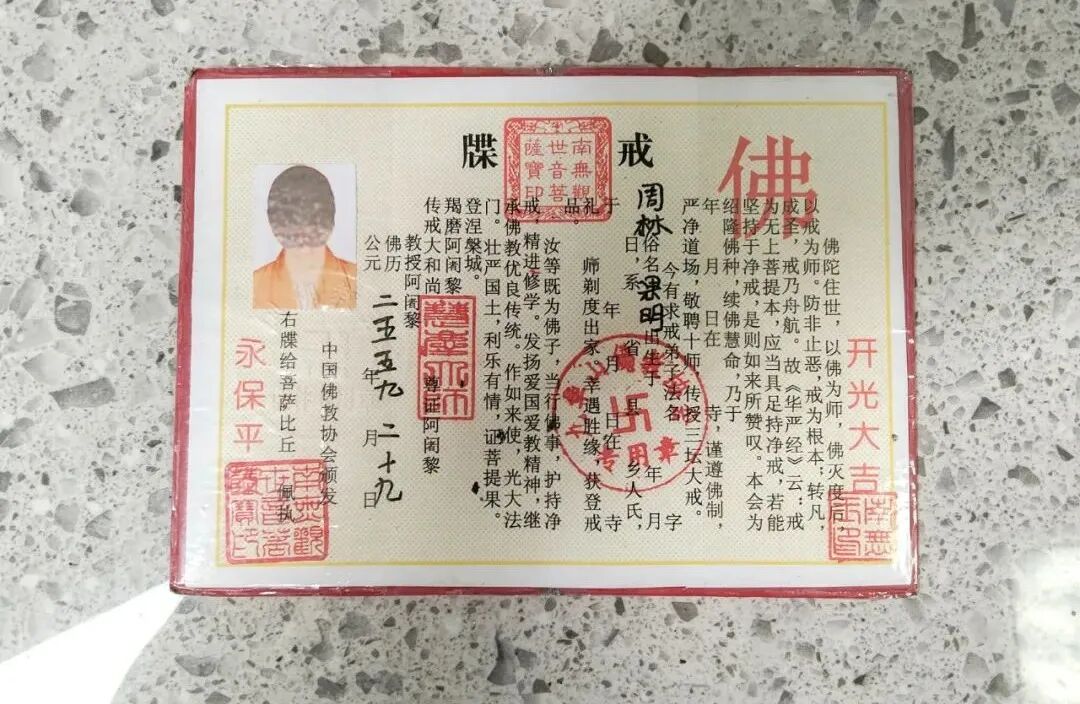 开光大吉
佛
戒牒
南無觀世音菩薩寶印
佛陀住世,以佛为师,佛灭度后,
以戒为师。防非止恶,戒为根本;转凡
成圣,戒乃舟航。故《华严经》云:戒
为无上菩提本,应当具足持净戒,若能
坚持于净戒,是则如来所赞叹。本会为
绍隆佛种,续佛慧命,乃于
年 月 日在 寺,谨遵佛制,
严净道场,敬聘十师,传授三坛大戒。
今有求戒弟子法名 字
周林
俗名 果明 出生于 年 月
日,系 省 县 乡人氏,
于 年 月 日在 寺
礼 师剃度出家,幸遇胜缘,获登戒
品。
汝等既为佛子,当行佛事,护持净
戒,精进修学。发扬爱国爱教精神,继
承佛教优良传统。作如来使,光大法
门。壮严国土,利乐有情,证菩提果。
登涅槃城。
羯磨阿阇黎 尊证阿阇黎
传戒大和尚
教授阿阇黎
佛历
公元 二五五九年 二月十九日
中国佛教协会颁发
右牒给菩萨比丘 佩执
永保平
卐
专用章
南無